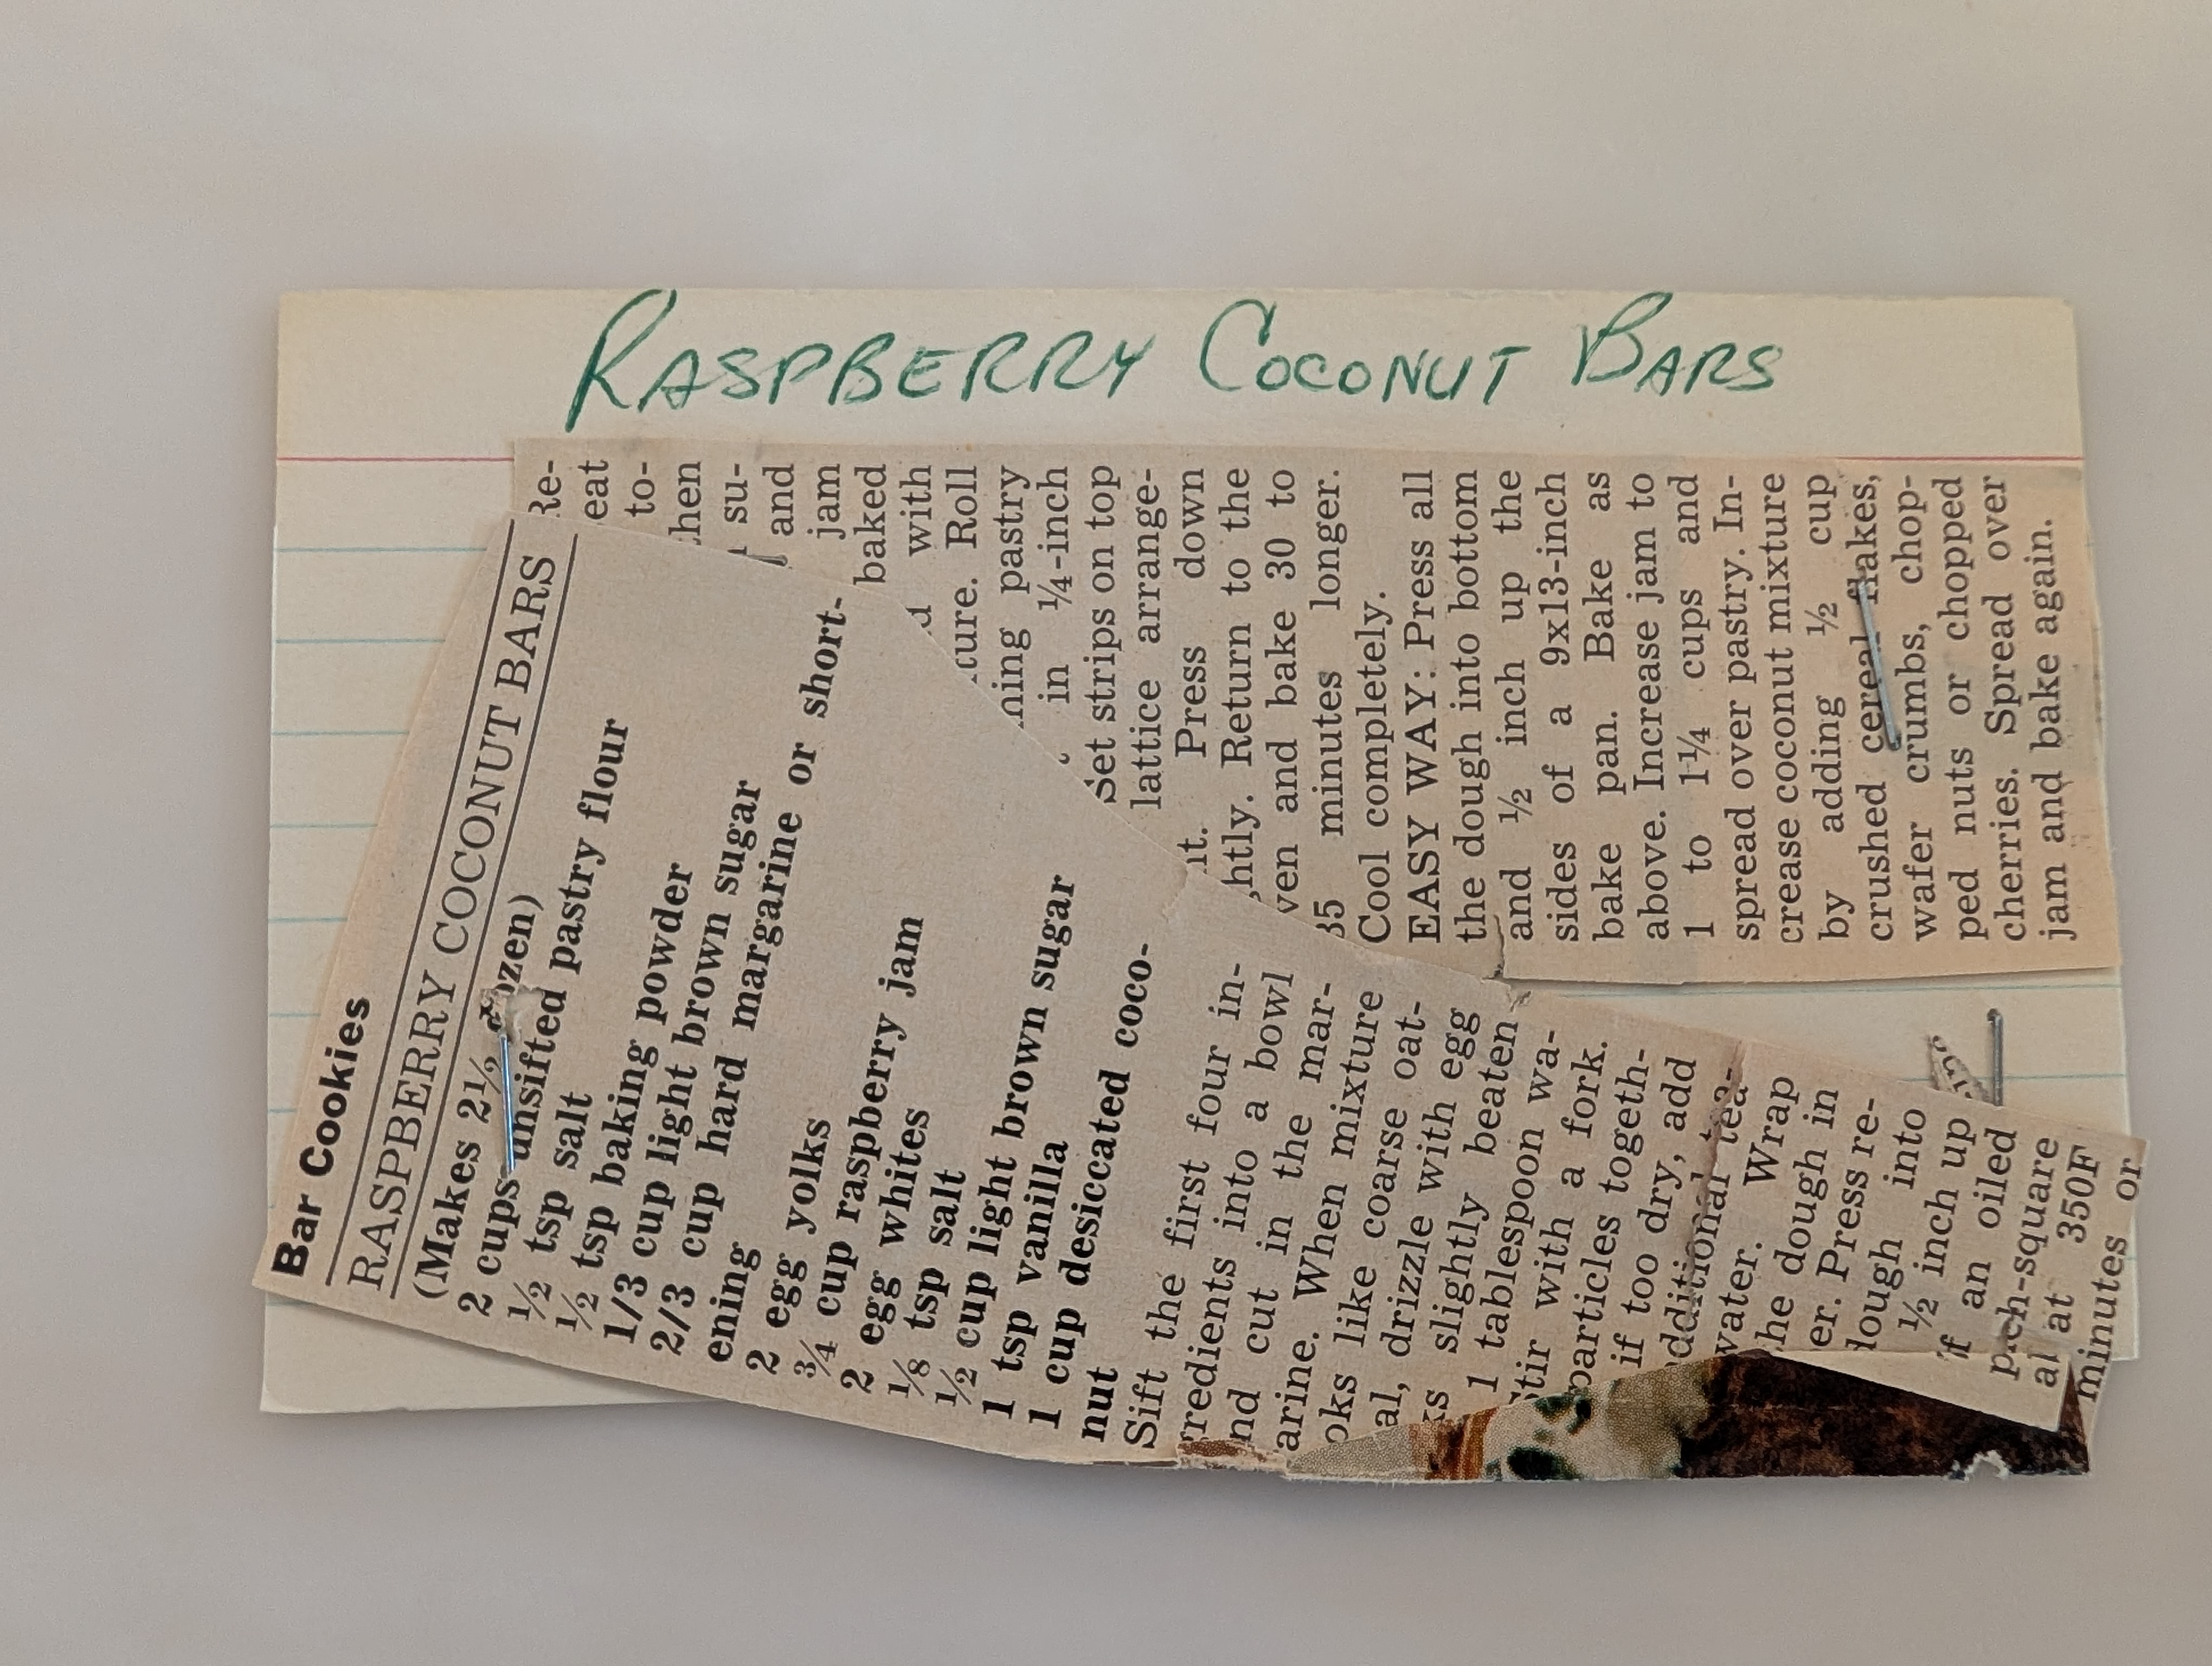 RASPBERRY COCONUT BARS
Bar Cookies
RASPBERRY COCONUT BARS
(Makes 2½
2 cups unsifted pastry flour
½ tsp salt
½ tsp baking powder
1/3 cup light brown sugar
2/3 cup hard margarine or short-
ening
2 egg yolks
¾ cup raspberry jam
2 egg whites
⅛ tsp salt
½ cup light brown sugar
1 tsp vanilla
1 cup desiccated coco-
nut
Sift the first four in-
redients into a bowl
nd cut in the mar-
arine. When mixture
oks like coarse oat-
al, drizzle with egg
ks slightly beaten
1 tablespoon wa-
tir with a fork.
particles togeth-
if too dry, add
additional tea-
water. Wrap
he dough in
er. Press re-
lough into
½ inch up
f an oiled
ch-square
at 350F
minutes or
Re-
eat
to-
hen
su-
and
jam
baked
with
ture. Roll
ning pastry
in ¼-inch
Set strips on top
lattice arrange-
nt. Press down
htly. Return to the
ven and bake 30 to
35 minutes longer.
Cool completely.
EASY WAY: Press all
the dough into bottom
and ½ inch up the
sides of a 9x13-inch
bake pan. Bake as
above. Increase jam to
1 to 1¼ cups and
spread over pastry. In-
crease coconut mixture
by adding ½ cup
crushed cereal flakes,
wafer crumbs, chop-
ped nuts or chopped
cherries. Spread over
jam and bake again.